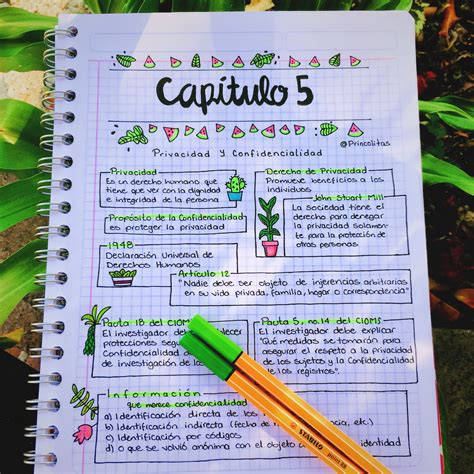 Capítulo 5
@Princolitas
Privacidad y Confidencialidad
Privacidad
Es un derecho humano que
tiene que ver con la dignidad
e integridad de la persona
Propósito de la Confidencialidad
es proteger la privacidad
Derecho de Privacidad
Promueve beneficios a los
individuos
John Stuart Mill
La sociedad tiene el
derecho para denegar
la privacidad solamen-
te para la protección de
otras personas
1948
Declaración Universal de
Derechos Humanos
Artículo 12
"Nadie debe ser objeto de injerencias arbitrarias
en su vida privada, familia, hogar o correspondencia"
Pauta 18 del CIOMS
El investigador debe
protecciones
Confidencialidad de
de investigación
Pauta 5, no.14 del CIOMS
El investigador debe explicar
"Qué medidas se tomarán para
asegurar el respeto a la privacidad
de los sujetos y la Confidencialidad
de los registros".
Información
que merece confidencialidad
a) Identificación directa de los
b) Identificación indirecta (fecha de etc.)
c) Identificación por códigos
d) o que se volvió anónima con el identidad
STABILO point 88